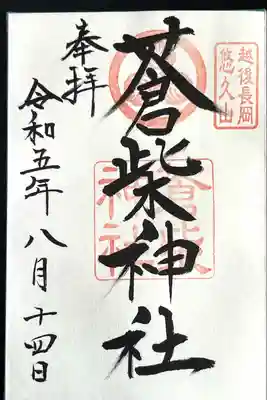 越後長岡
悠久山
蒼柴神社
奉拝
令和五年八月十四日
蒼柴
神社